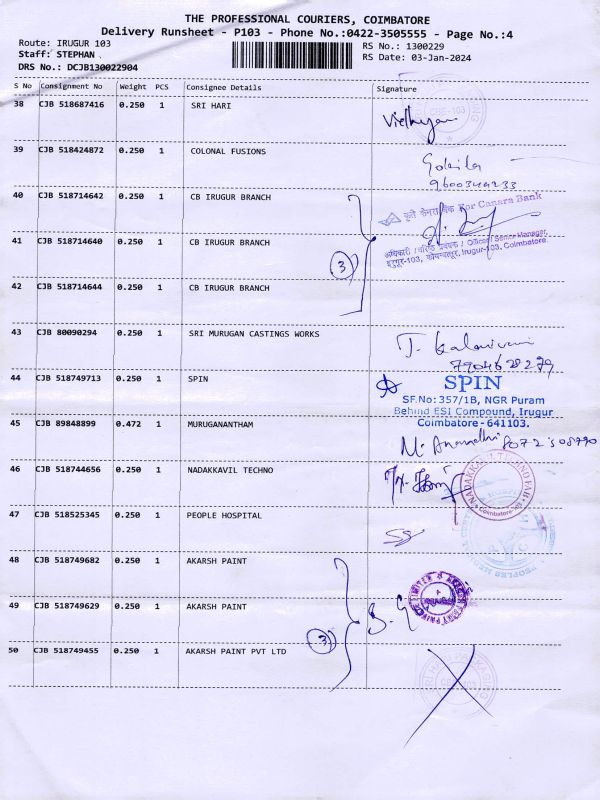 THE PROFESSIONAL COURIERS, COIMBATORE
Delivery Runsheet - P103 - Phone No.:0422-3505555 - Page No.:4
Route: IRUGUR 103
RS No.: 1300229
Staff: STEPHAN .
RS Date: 03-Jan-2024
DRS No.: DCJB130022904
S No Consignment No Weight PCS Consignee Details Signature
38 CJB 518687416 0.250 1 SRI HARI
39 CJB 518424872 0.250 1 COLONAL FUSIONS
Gokila
9600344233
40 CJB 518714642 0.250 1 CB IRUGUR BRANCH
कृते केनरा बैंक For Canara Bank
41 CJB 518714640 0.250 1 CB IRUGUR BRANCH
अधिकारी / वरिष्ठ प्रबंधक / Officer / Senior Manager,
इरुगूर-103, कोयम्बत्तूर, Irugur-103, Coimbatore.
3
42 CJB 518714644 0.250 1 CB IRUGUR BRANCH
43 CJB 80090294 0.250 1 SRI MURUGAN CASTINGS WORKS
44 CJB 518749713 0.250 1 SPIN
SPIN
SF.No: 357/1B, NGR Puram
Behind ESI Compound, Irugur
Coimbatore - 641103.
45 CJB 89848899 0.472 1 MURUGANANTHAM
46 CJB 518744656 0.250 1 NADAKKAVIL TECHNO
47 CJB 518525345 0.250 1 PEOPLE HOSPITAL
48 CJB 518749682 0.250 1 AKARSH PAINT
49 CJB 518749629 0.250 1 AKARSH PAINT
3
50 CJB 518749455 0.250 1 AKARSH PAINT PVT LTD